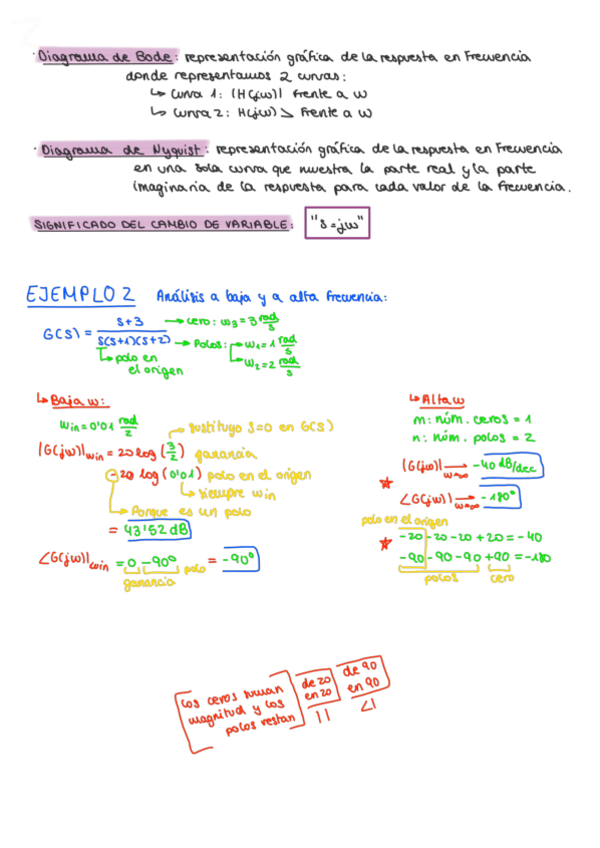 · Diagrama de Bode: representación gráfica de la respuesta en Frecuencia
donde representamos 2 curvas:
↳ Curva 1: |H(jω)| Frente a ω
↳ Curva 2: H(jω)⦣ Frente a ω
· Diagrama de Nyquist: representación gráfica de la respuesta en Frecuencia
en una sola curva que muestra la parte real y la parte
imaginaria de la respuesta para cada valor de la Frecuencia.
SIGNIFICADO DEL CAMBIO DE VARIABLE: "s=jω"
EJEMPLO 2 Análisis a baja y a alta frecuencia:
G(s) = s+3 / s(s+1)(s+2)
→ cero: ω3 = 3 rad/s
→ Polos: ω1 = 1 rad/s
ω2 = 2 rad/s
↳ polo en
el origen
↳ Baja ω:
ωin = 0'01 rad/2
sustituyo s=0 en G(s)
|G(jω)|ωin = 20 log (3/2) ganancia
-20 log (0'01) polo en el origen
↳ siempre ωin
↳ Porque es un polo
= 43'52 dB
∠G(jω)|ωin = 0 - 90º = -90º
ganancia polo
↳ Alta ω
m: núm. ceros = 1
n: núm. polos = 2
|G(jω)| → ω→∞ -40 dB/dec
★ ∠G(jω)| → ω→∞ -180º
polo en el origen
★ -20 -20 -20 +20 = -40
-90 -90 -90 +90 = -180
polos cero
Los ceros suman
magnitud y los
polos restan
de 20
en 20
||
de 90
en 90
∠|